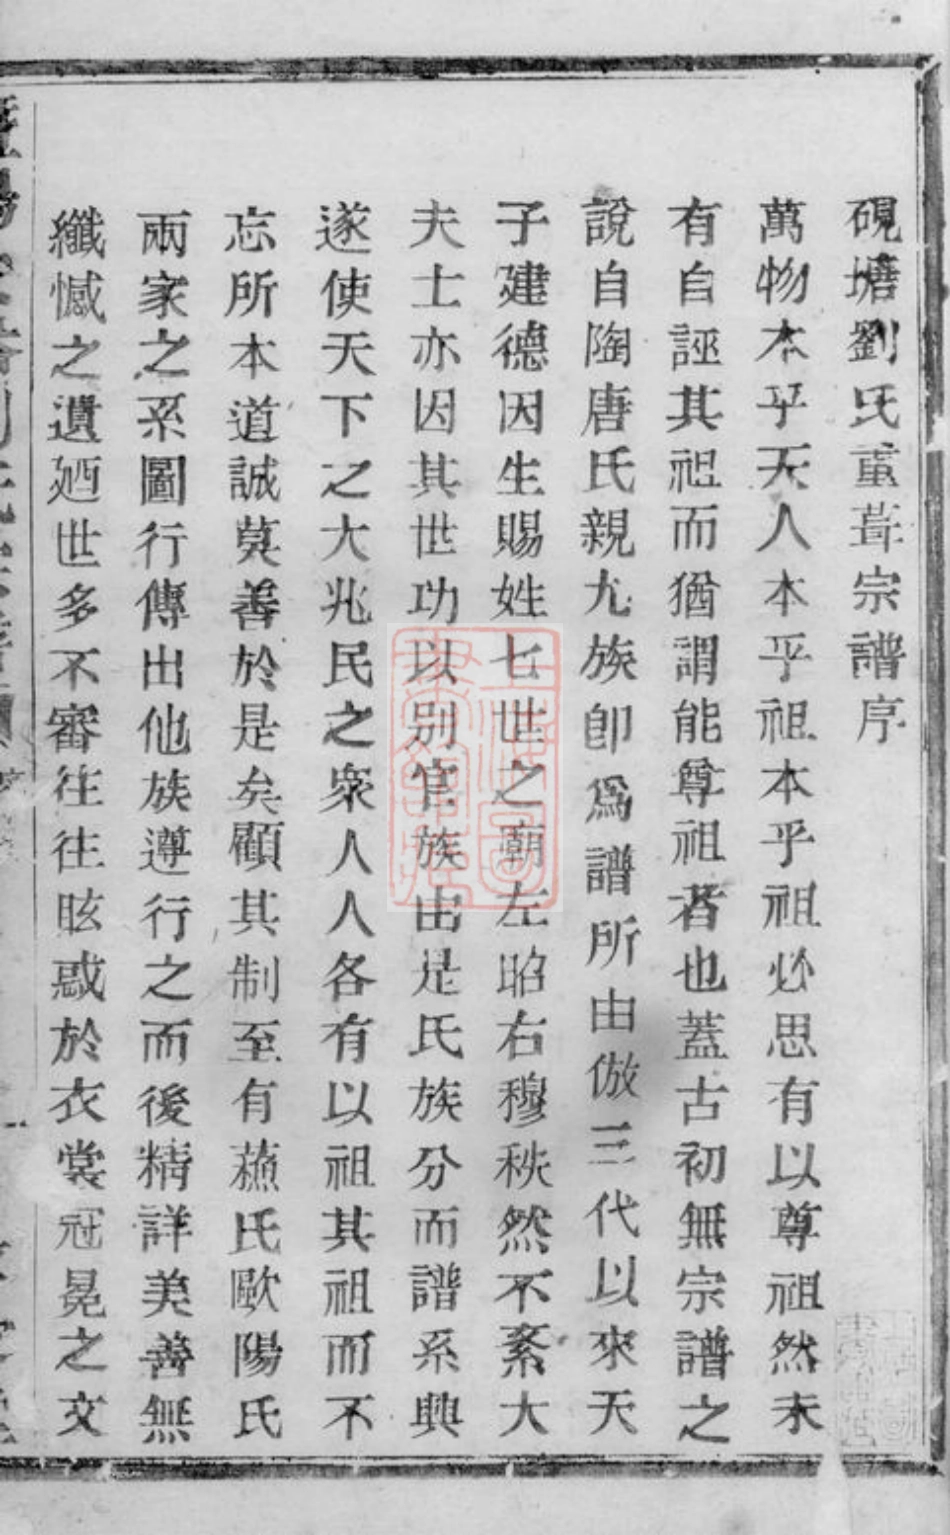 硯塘劉氏重葺宗譜序
萬物本乎天人本乎祖本乎祖必思有以尊祖然未
有自誣其祖而猶謂能尊祖者也蓋古初無宗譜之
說自陶唐氏親九族卽爲譜所由倣三代以來天
子建德因生賜姓七世之廟左昭右穆秩然不紊大
夫士亦因其世功以別官族由是氏族分而譜系興
遂使天下之大兆民之衆人人各有以祖其祖而不
忘所本道誠莫善於是矣顧其制至有蘓氏歐陽氏
兩家之系圖行傳出他族遵行之而後精詳美善無
纖憾之遺廼世多不審往往眩惑於衣裳冠冕之文